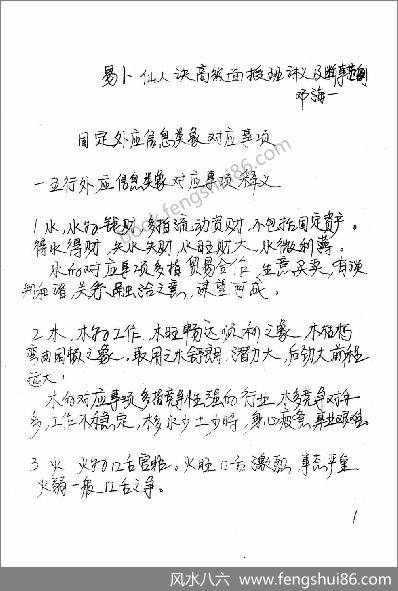 易卜仙人诀高级面授班讲义及断事范例
邓海一
固定外应信息类象对应事项
一五行外应信息类象对应事项释义
1水,水为钱财,多指流动资财,不包括固定资产。
得水得财,失水失财,水旺财大,水微利薄。
水的对应事项多指贸易合作,生意买卖,有谈
判和谐,关系融洽之意,谋望可成。
2.木,木为工作,木旺畅达顺利之象,木枯朽
弯曲困极之象。取用之木舒朗,潜力大,后劲大前程
远大。
木的对应事项多指竞争性强的行业,木多竞争对手
多,工作不稳定,木多水少土少时,身心疲惫,事业艰难
3 火 火为口舌官非。火旺口舌激烈,事态严重
火弱一般口舌之争。
1
book.fengshui86.com
风水八六 www.fengshui86.com